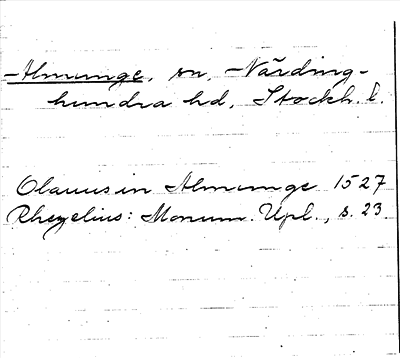 Almunge, sn, Närding-
hundra hd, Stockh. l.
Olauus in Almunge 1527
Rhezelius: Monum. Upl., s. 23.